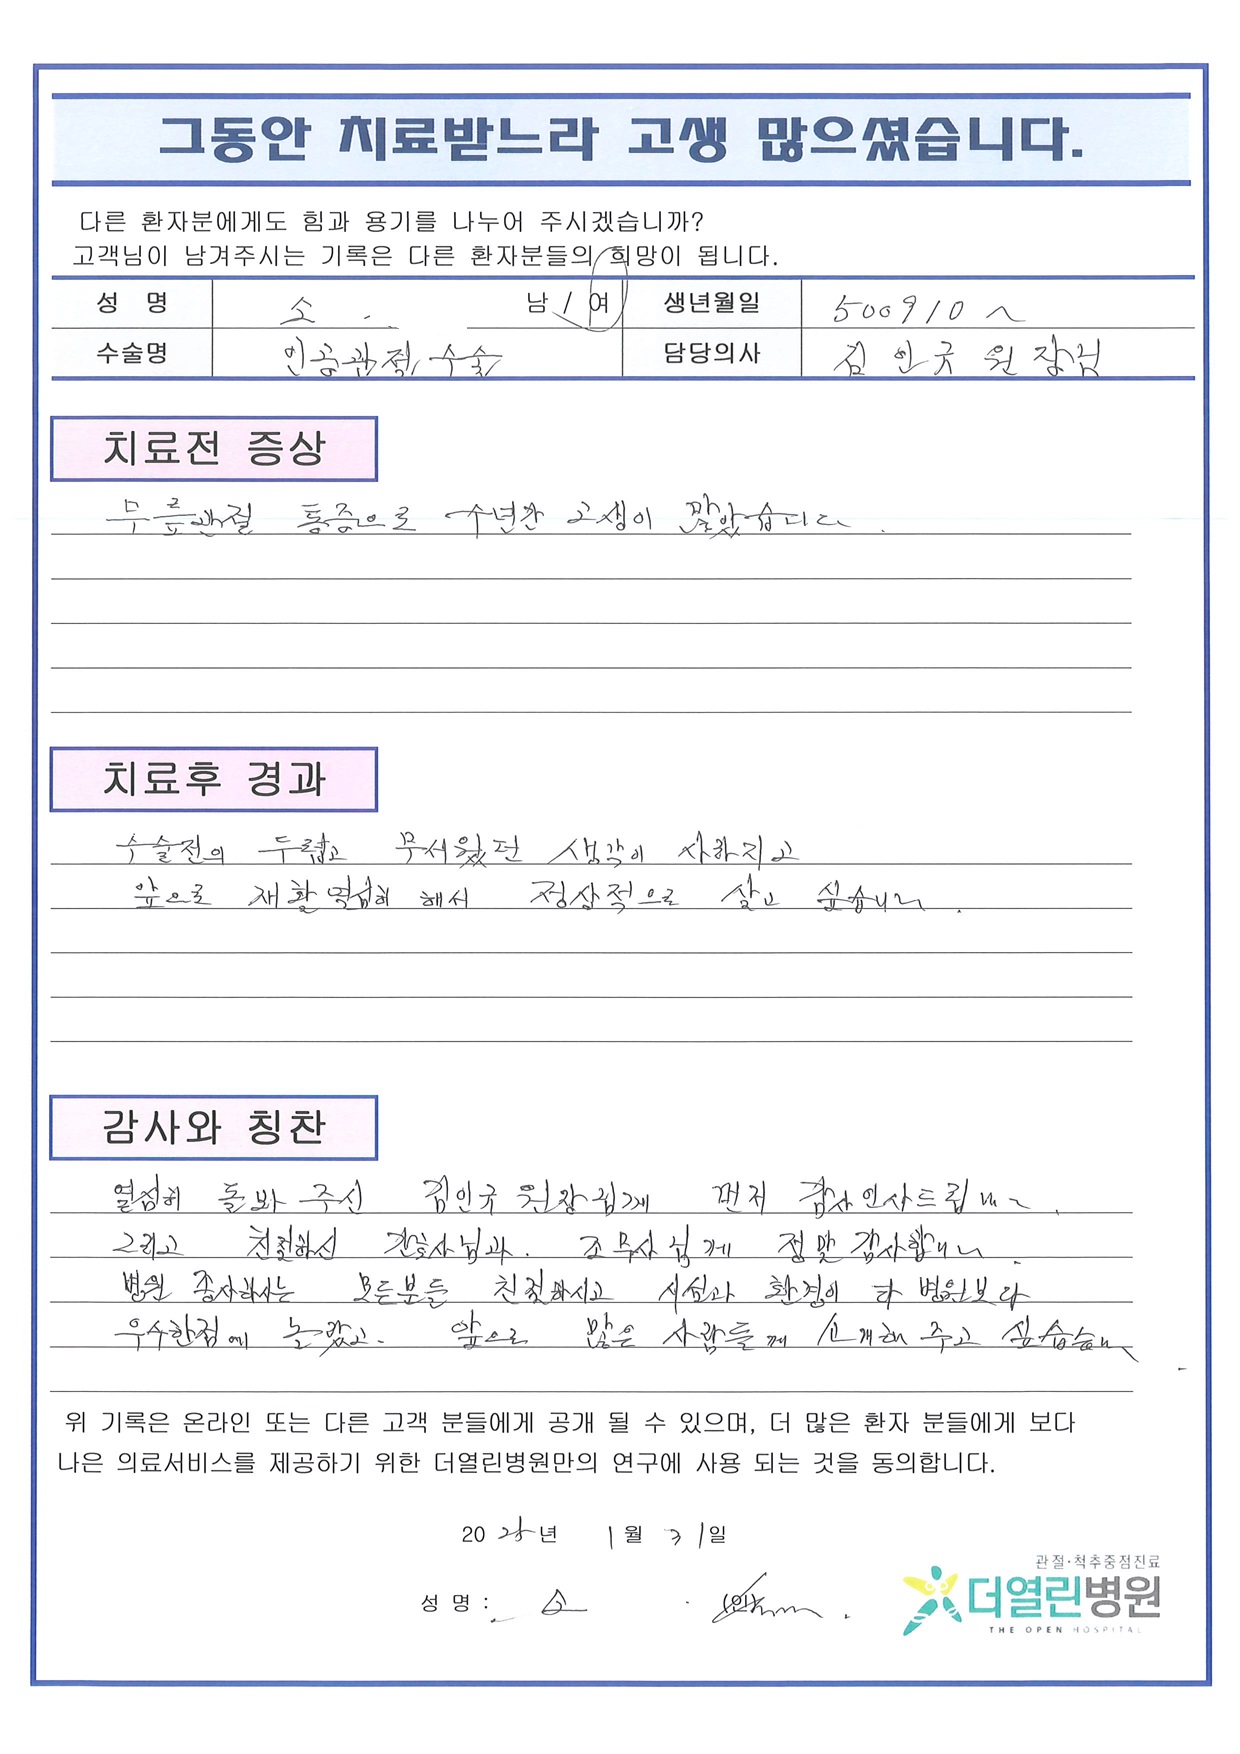 그동안 치료받느라 고생 많으셨습니다.
다른 환자분에게도 힘과 용기를 나누어 주시겠습니까?
고객님이 남겨주시는 기록은 다른 환자분들의 희망이 됩니다.
성 명 소 남 / 여 생년월일 500910 ~
수술명 인공관절수술 담당의사 김인규 원장님
치료전 증상
무릎관절 통증으로 수년간 고생이 많았습니다.
치료후 경과
수술전의 두렵고 무서웠던 생각이 사라지고
앞으로 재활 열심히 해서 정상적으로 살고 싶습니다.
감사와 칭찬
열심히 돌봐 주신 김인규 원장님께 먼저 감사인사드립니다.
그리고 친절하신 간호사님과. 조무사님께 정말 감사합니다.
병원 종사하시는 모든분들 친절하시고 시설과 환경이 타 병원보다
우수한점에 놀랐고. 앞으로 많은 사람들께 소개해 주고 싶습니다.
위 기록은 온라인 또는 다른 고객 분들에게 공개 될 수 있으며, 더 많은 환자 분들에게 보다
나은 의료서비스를 제공하기 위한 더열린병원만의 연구에 사용 되는 것을 동의합니다.
2025년 1월 31일
성 명 : 소 (인)
관절·척추중점진료
더열린병원
THE OPEN HOSPITAL